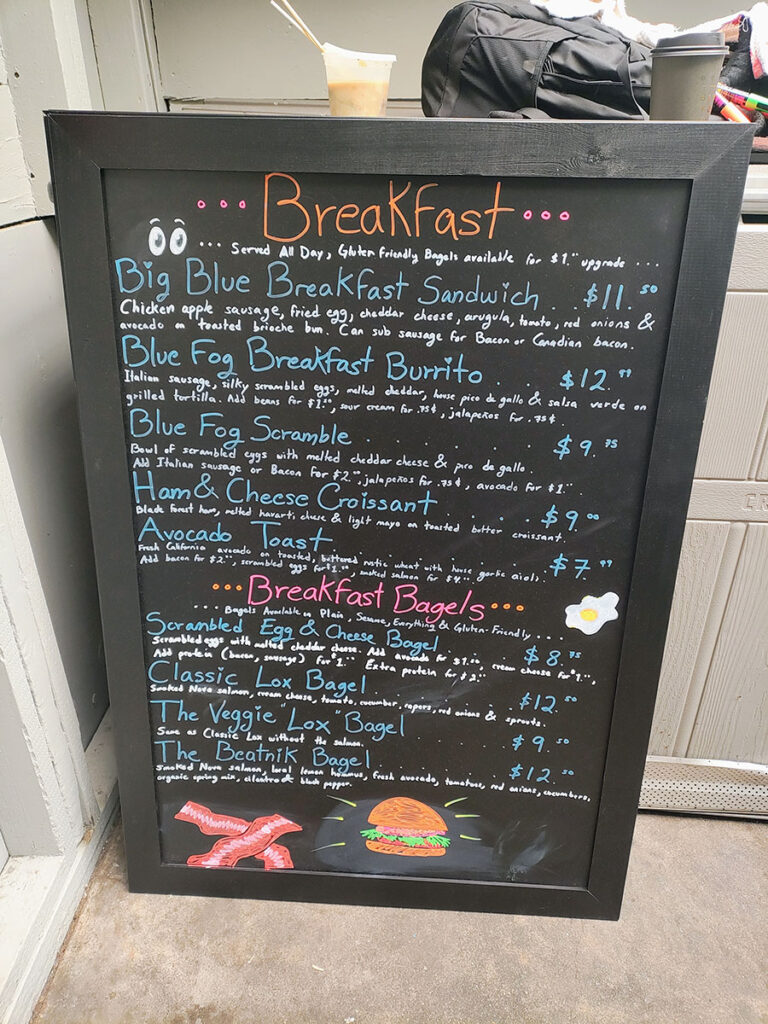 ... Breakfast ...
... Served All Day, Gluten friendly Bagels available for $1.00 upgrade ...
Big Blue Breakfast Sandwich . $11.50
Chicken apple sausage, fried egg, cheddar cheese, arugula, tomato, red onions &
avocado on toasted brioche bun. Can sub sausage for Bacon or Canadian bacon.
Blue Fog Breakfast Burrito . . . $12.99
Italian sausage, silky scrambled eggs, melted cheddar, house pico de gallo & salsa verde on
grilled tortilla. Add beans for $1.00, sour cream for .75¢, jalapeños for .75¢.
Blue Fog Scramble . . . . . . . . $9.75
Bowl of scrambled eggs with melted cheddar cheese & pico de gallo.
Add Italian sausage or Bacon for $2.00, jalapeños for .75¢, avocado for $1.00.
Ham & Cheese Croissant . . . . . $9.00
Black forest ham, melted havarti cheese & light mayo on toasted butter croissant.
Avocado Toast . . . . . . . . $7.99
Fresh California avocado on toasted, buttered rustic wheat with house garlic aioli.
Add bacon for $2.00, scrambled eggs for $1.00, smoked salmon for $4.00.
... Breakfast Bagels ...
... Bagels Available in Plain, Sesame, Everything & Gluten-Friendly ...
Scrambled Egg & Cheese Bagel . . . $8.75
Scrambled eggs with melted cheddar cheese. Add avocado for $1.00, cream cheese for $1.00,
Add protein (bacon, sausage) for $1.00. Extra protein for $2.00.
Classic Lox Bagel . . . . . . $12.50
Smoked Nova salmon, cream cheese, tomato, cucumber, capers, red onions & sprouts.
The Veggie "Lox" Bagel . . . . $9.50
Same as Classic Lox without the salmon.
The Beatnik Bagel . . . . . . $12.50
Smoked Nova salmon, local lemon hummus, fresh avocado, tomatoes, red onions, cucumbers,
organic spring mix, cilantro & black pepper.